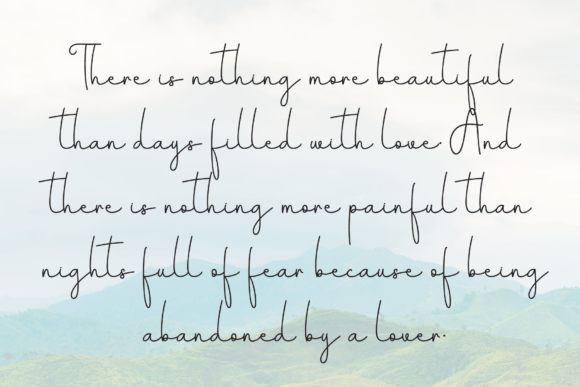 There is nothing more beautiful
than days filled with love. And
there is nothing more painful than
nights full of fear because of being
abandoned by a lover.